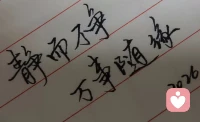 静而不争
万事随缘
2026